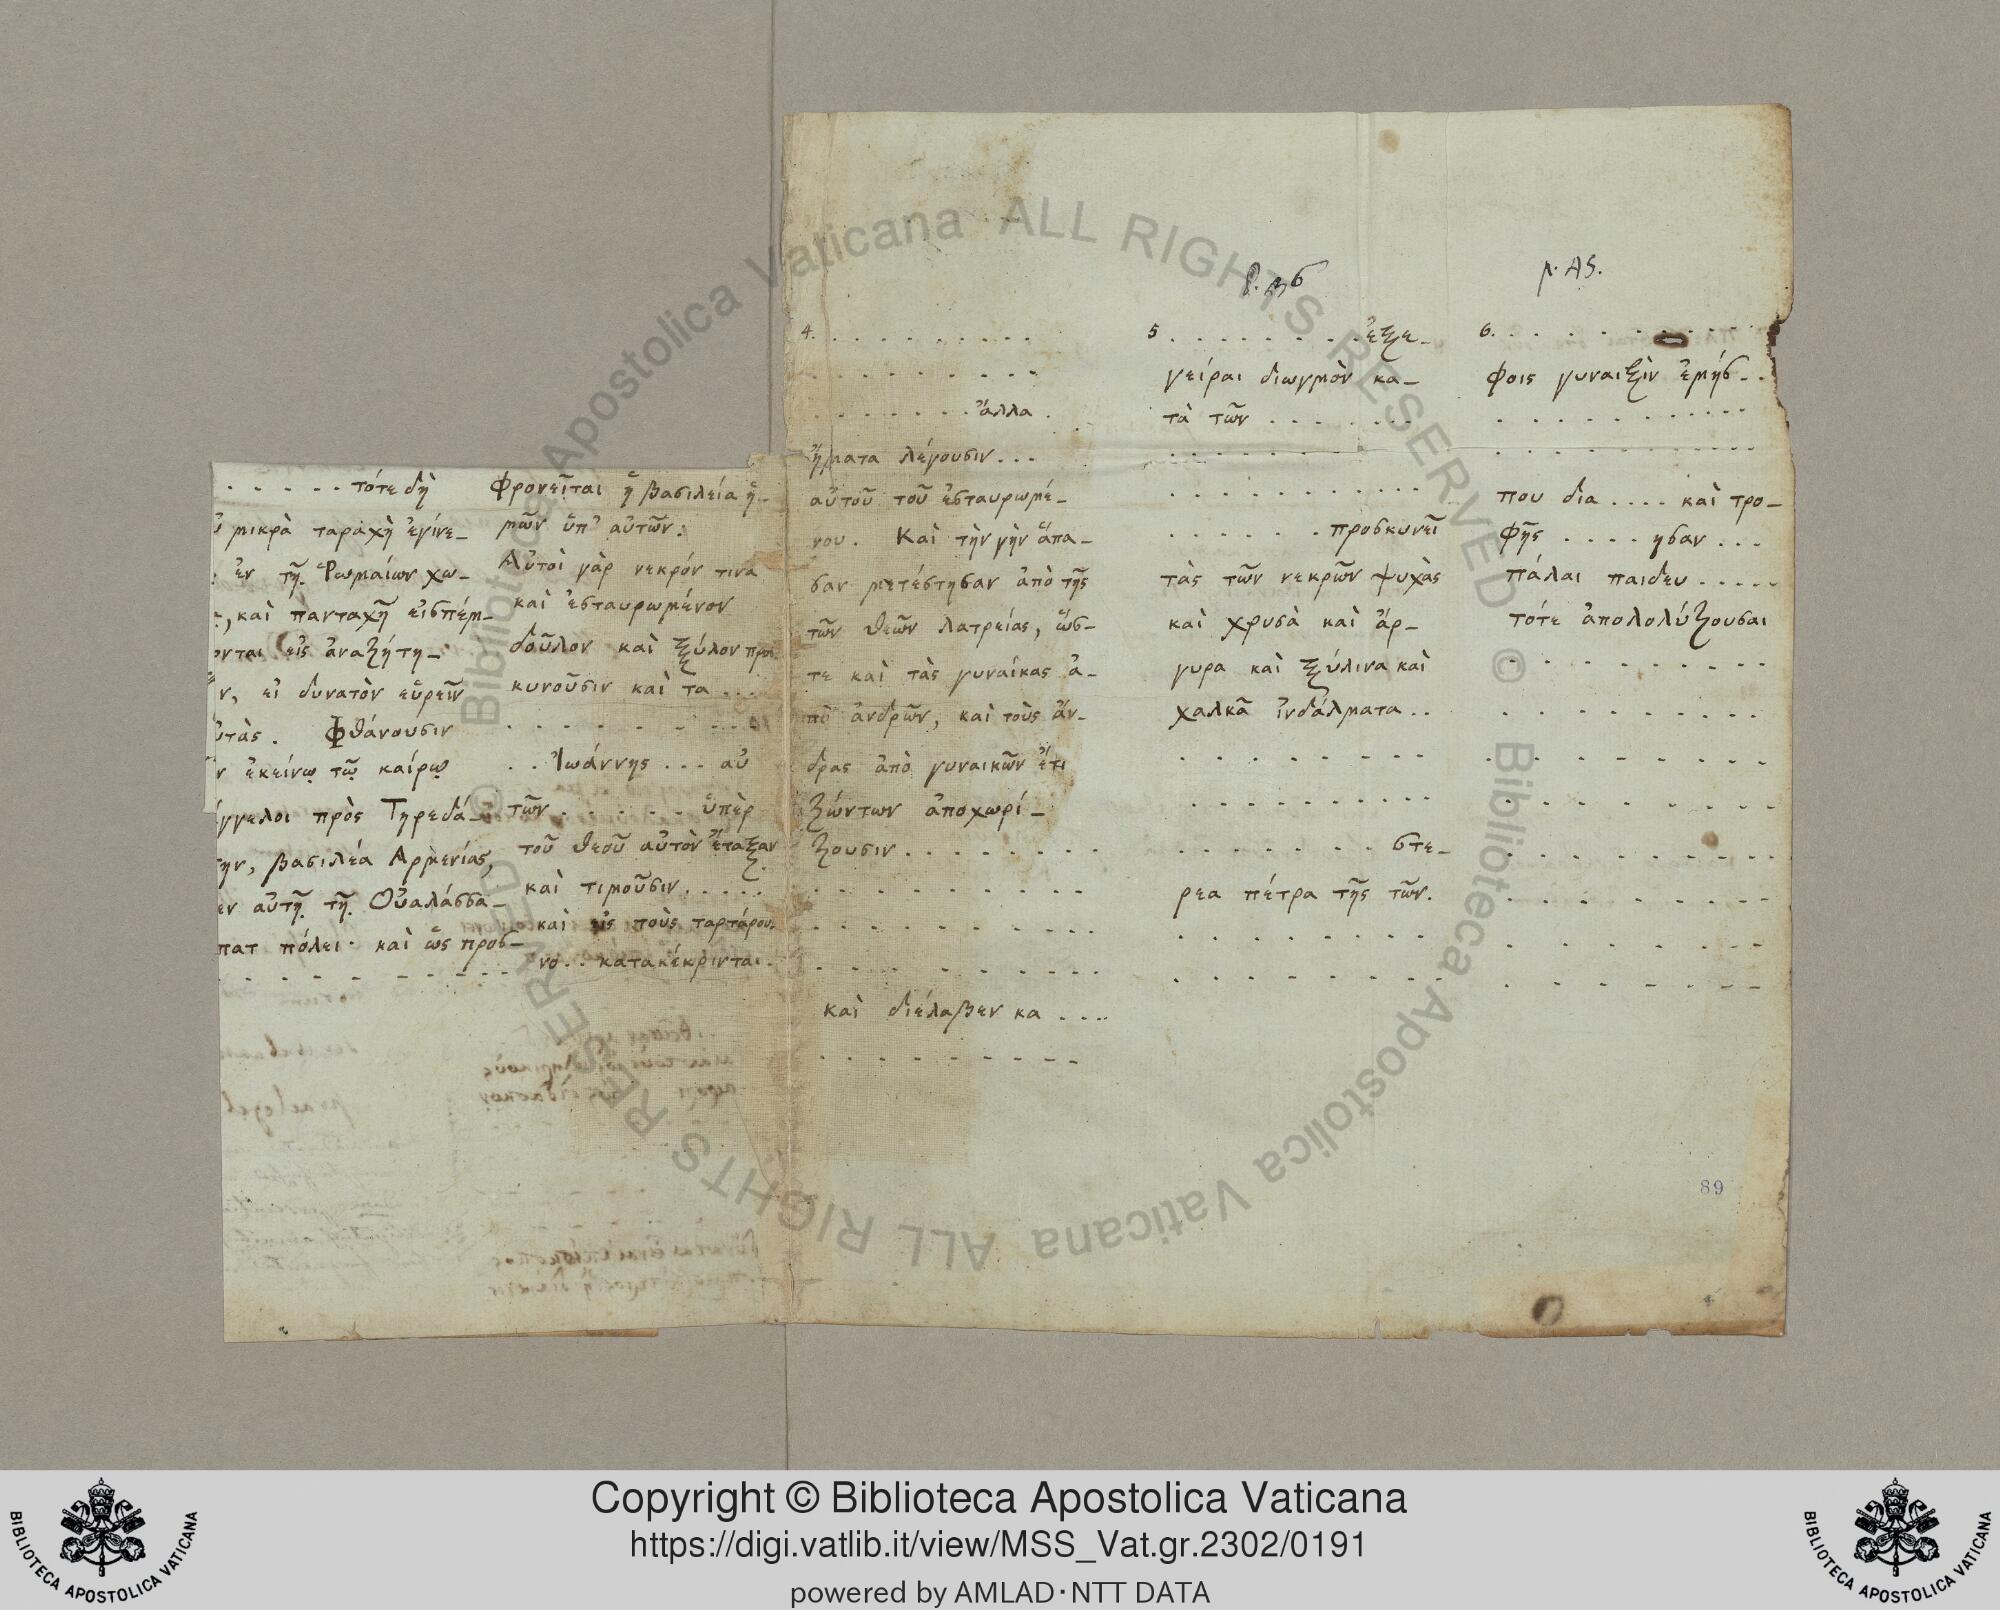 p. AS.
4. . . . . . . . . .
. . . . . . . . .
. . . . . . . ἄλλα .
ῥήματα λέγουσιν...
αὐτοῦ τοῦ ἐσταυρωμέ-
νου. Καὶ τὴν γῆν ἅπα-
σαν μετέστησαν ἀπὸ τῆς
τῶν θεῶν λατρείας, ὥσ-
τε καὶ τὰς γυναίκας ἀ-
πὸ ἀνδρῶν, καὶ τοὺς ἄν-
δρας ἀπὸ γυναικῶν ἔτι
ζώντων ἀποχωρί-
ζουσιν. . . . . . . .
. . . . . . . . .
. . . . . . . . . .
. . . . . . . . . .
καὶ διέλαβεν κα . . . .
. . . . . . . . .
5 . . . . . . . . ἐξε-
γείραι διωγμὸν κα-
τὰ τῶν . . . . . . .
. . . . . . . . . .
. . . . . . . . . . .
. . . . . . προσκυνεῖ
τὰς τῶν νεκρῶν ψυχὰς
καὶ χρυσὰ καὶ ἄρ-
γυρα καὶ ξύλινα καὶ
χαλκᾶ ἰνδάλματα . .
. . . . . . . . .
. . . . . . . . . .
. . . . . . . στε-
ρεα πέτρα τῆς τῶν.
. . . . . . . . .
. . . . . . . . .
6. . . . . . . . .
φοις γυναιξὶν ἐμήσ- .
. . . . . . . . . .
. . . . . . . . . .
που δια . . . . καὶ τρο-
φῆς . . . . ησαν . . .
πάλαι παιδευ . . . . .
τότε ἀπολολύζουσαι
. . . . . . . . .
. . . . . . . . .
. . . . . . . . .
. . . . . . . . .
. . . . . . . . .
. . . . . . . . .
. . . . . . . . .
. . . . . . . . .
. . . . . τότε δὴ
μικρὰ ταραχὴ ἐγίνε-
ἐν τῇ Ῥωμαίων χω-
, καὶ πανταχῆ εἰσπέμ-
ονται εἰς ἀναζήτη-
ν, εἰ δυνατὸν εὑρεῖν
ὐτὰς. Φθάνουσιν
ν ἐκείνῳ τῷ καίρῳ
άγγελοι πρὸς Τηρεδά-
την, βασιλέα Αρμενίας,
ἐν αὐτῇ τῇ Οὐαλάσσα-
πατ πόλει· καὶ ὡς προσ-
. . . . . . . . . .
φρονεῖται ἡ βασιλεία ἡ-
μῶν ὑπ' αὐτῶν:
Αὐτοὶ γὰρ νεκρόν τινα
καὶ ἐσταυρωμένον
δοῦλον καὶ ξύλον προσ-
κυνοῦσιν καὶ τα . . .
. . . . . . . . .
. . Ἰωάννης . . . αὐ
τῶν . . . . . . ὑπὲρ
τοῦ θεοῦ αὐτὸν ἔταξαν
καὶ τιμοῦσιν . . . . .
καὶ εἰς τοὺς ταρτάρου.
νο . . κατακέκρινται.
89
ALL RIGHTS RESERVED © Biblioteca Apostolica Vaticana
ALL RIGHTS RESERVED © Biblioteca Apostolica Vaticana
Copyright © Biblioteca Apostolica Vaticana
https://digi.vatlib.it/view/MSS_Vat.gr.2302/0191
powered by AMLAD·NTT DATA
BIBLIOTECA APOSTOLICA VATICANA
BIBLIOTECA APOSTOLICA VATICANA